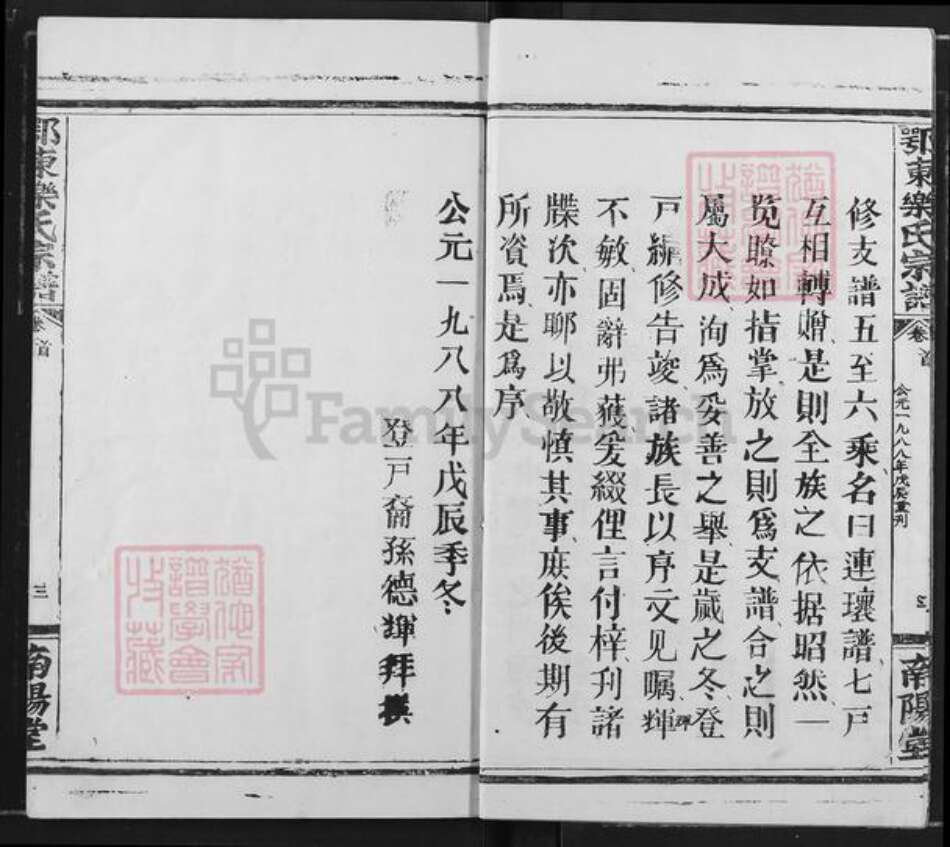 鄂東樂氏宗譜
卷首
公元一九八八年戊辰重刊
南陽堂
修支譜五至六乘名曰連瓌譜七戸
互相轉贈是則全族之依据昭然一
覓瞭如指掌放之則爲支譜合之則
屬大成洵爲妥善之舉是歲之冬登
戸編修告竣諸族長以序文见嘱輝
不敏固辭弗獲爰綴俚言付梓刊諸
牒次亦聊以敬慎其事庶俟後期有
所資焉是爲序
公元一九八八年戊辰季冬
登戸裔孫德輝拜撰
鄂東樂氏宗譜
卷首
三
南陽堂
FamilySearch
譜學會
收藏